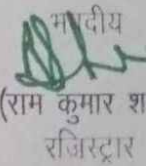 भवदीय
(राम कुमार श
रजिस्ट्रार